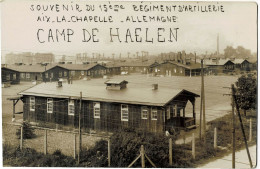 SOUVENIR DU 151ÈME RÉGIMENT D'ARTILLERIE
AIX-LA-CHAPELLE - ALLEMAGNE
CAMP DE HAELEN